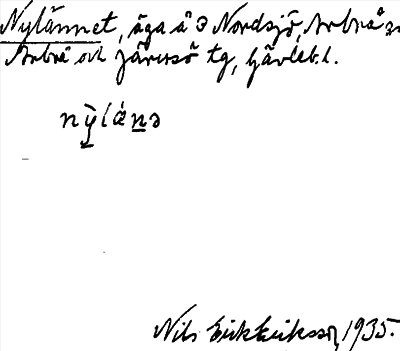 Nylännet, äga å Nordsjö, Arbrå
Arbrå och Järvsö tg, Gävleb.l.
nỳlánə
Nils Erik Eriksson, 1935.